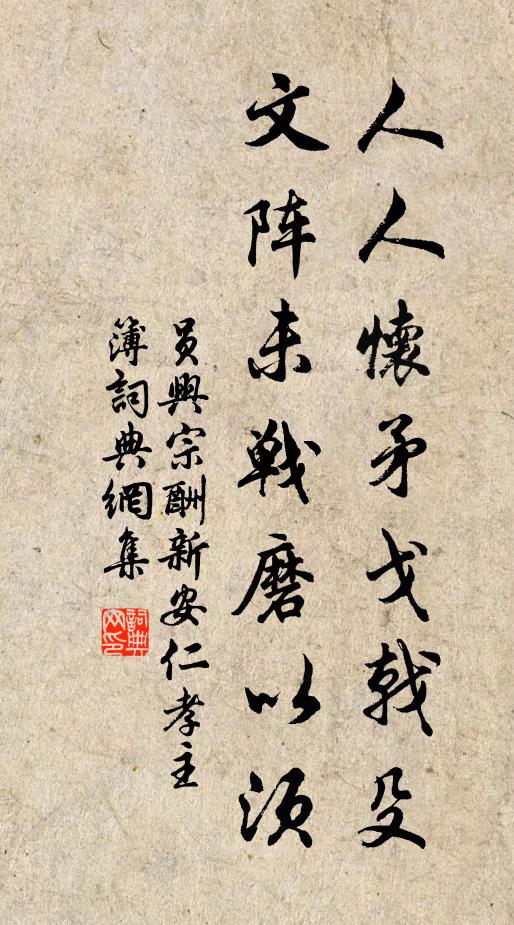 人人懷矛戈戟殳
文阵未戰磨以须
員興宗酬新安仁孝主
簿詞典網集
詞典网印